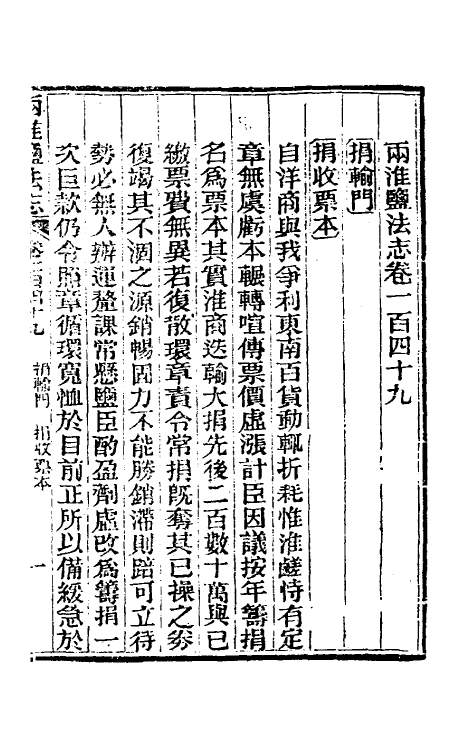 兩淮鹽法志卷一百四十九
捐輸門
捐收票本
自洋商與我爭利東南百貨動輒折耗惟淮鹺恃有定
章無虞虧本輾轉喧傳票價虛漲計臣因議按年籌捐
名爲票本其實淮商迭輸大捐先後二百數十萬與已
繳票費無異若復散環章責令常捐旣奪其已操之劵
復竭其不涸之源銷暢固力不能勝銷滯則踣可立待
勢必無人辦運釐課常懸鹽臣酌盈劑虛改爲籌捐一
次巨款仍令照章循環寬恤於目前正所以備緩急於
兩淮鹽法志 卷一百四十九 捐輸門 捐收票本 一